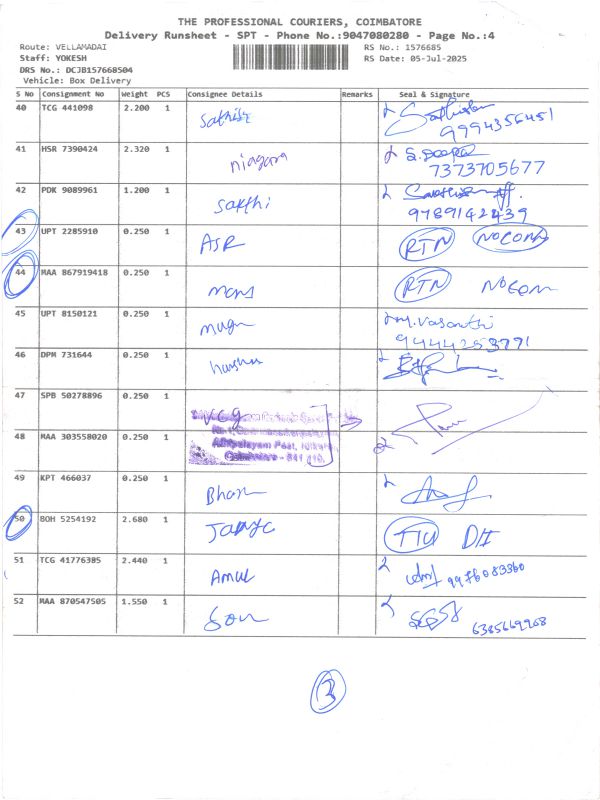 THE PROFESSIONAL COURIERS, COIMBATORE
Delivery Runsheet - SPT - Phone No.:9047080280 - Page No.:4
Route: VELLAMADAI RS No.: 1576685
Staff: YOKESH RS Date: 05-Jul-2025
DRS No.: DCJB157668504
Vehicle: Box Delivery
S No Consignment No Weight PCS Consignee Details Remarks Seal & Signature
40 TCG 441098 2.200 1
9994356451
41 HSR 7390424 2.320 1 niagara
7373705677
42 PDK 9089961 1.200 1 Sakthi
9789142439
43 UPT 2285910 0.250 1 ASR RTN NOCONN
44 MAA 867919418 0.250 1 RTN
45 UPT 8150121 0.250 1 M. Vasanthi
9444253791
46 DPM 731644 0.250 1
47 SPB 50278896 0.250 1 VCG
48 MAA 303558020 0.250 1
49 KPT 466037 0.250 1
50 BOH 5254192 2.680 1
51 TCG 41776385 2.440 1 Amul 9976083360
52 MAA 870547505 1.550 1 6385669968
3